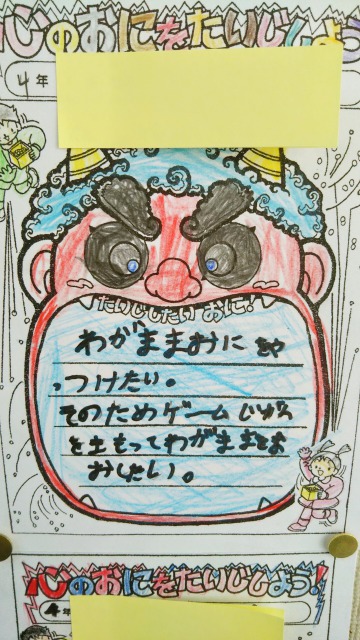 心のおにをたいじしよう
4年
たいじしたいおに!
わがままおにをや
っつけたい。
そのためゲームじかん
をまもってわがままをな
おしたい。
心のおにをたいじしよう!
4年